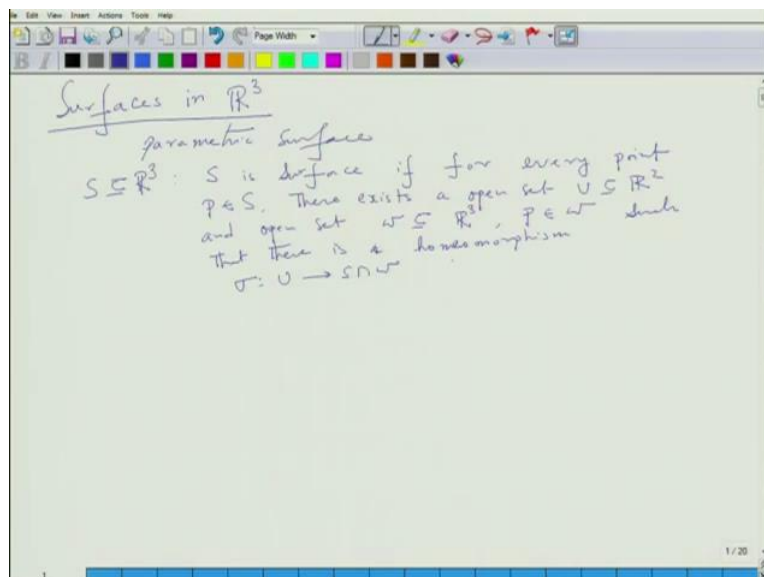 File Edit View Insert Actions Tools Help
Page Width
B I
Surfaces in ℝ³
parametric surface
S ⊆ ℝ³ : S is surface if for every point
p ∈ S, There exists a open set U ⊆ ℝ²
and open set W ⊆ ℝ³, p ∈ W such
that there is a homeomorphism
σ: U → S∩W
1 / 20
1